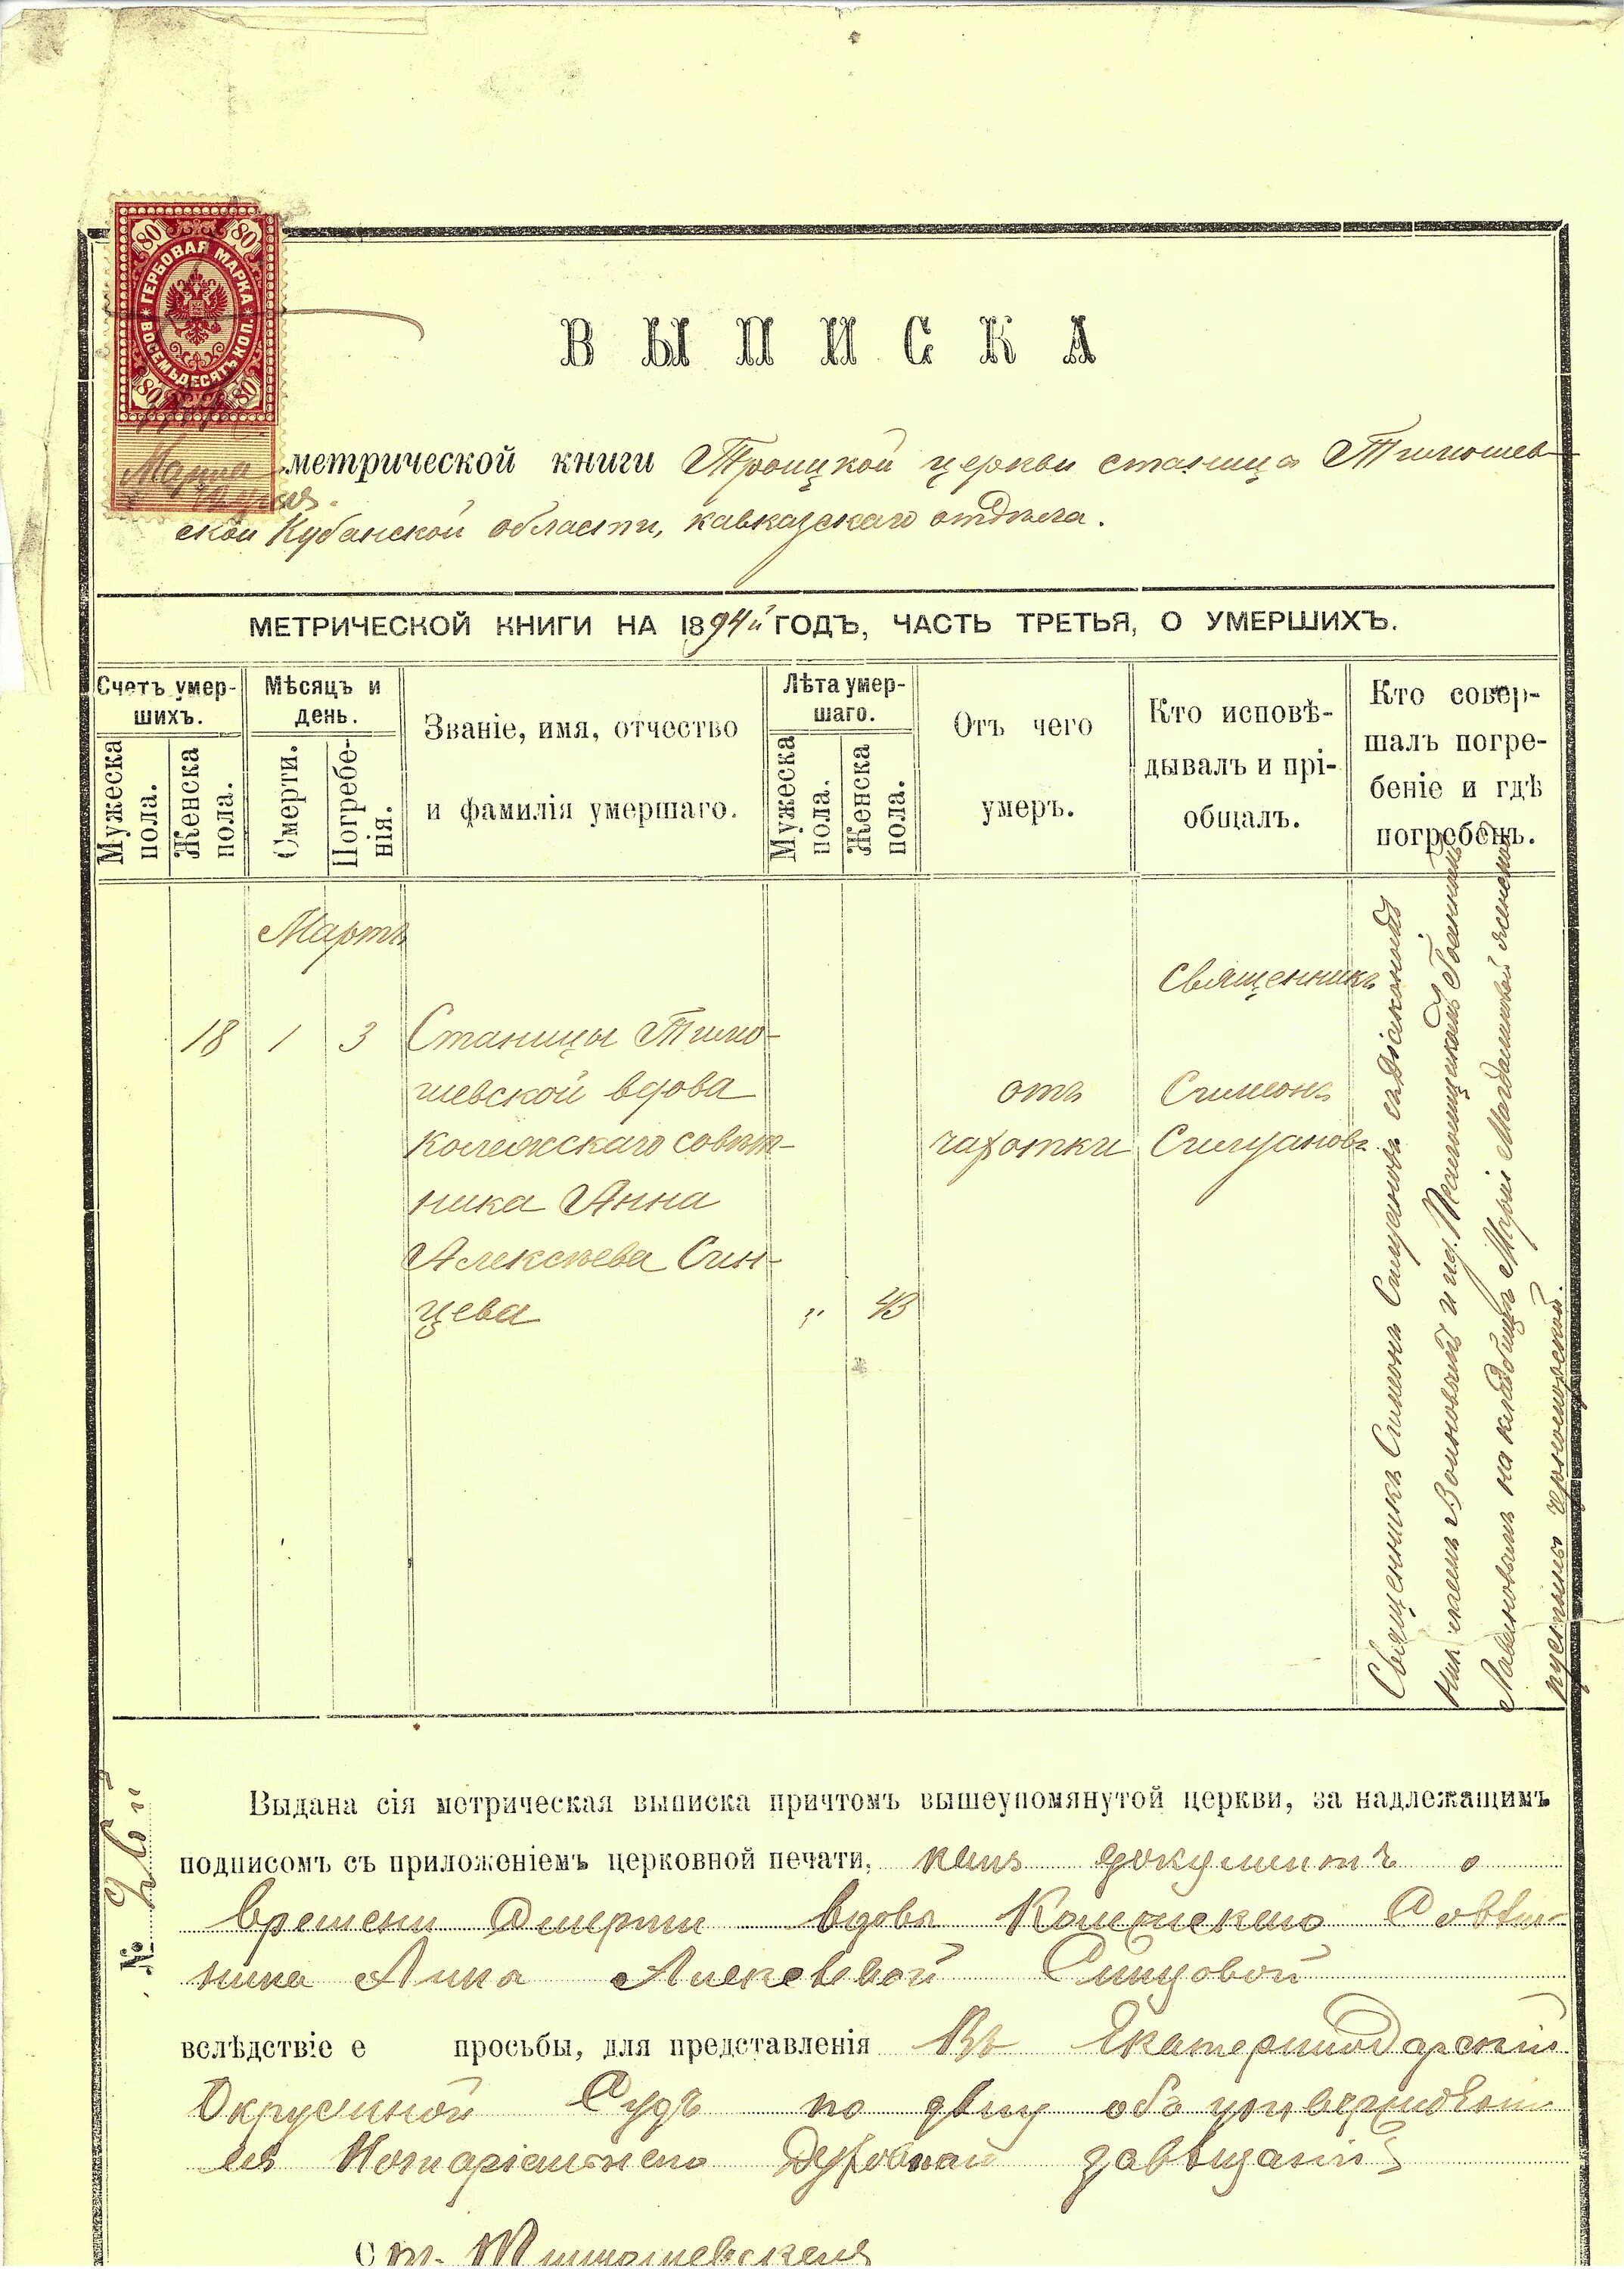 80 80
ГЕРБОВАЯ МАРКА
ВОСЕМЬДЕСЯТЪ КОП.
80 80
ВЫПИСКА
Марта
метрической книги Троицкой церкви станица Тимошев-
ской Кубанской области, кавказскаго отдѣла.
МЕТРИЧЕСКОЙ КНИГИ НА 1894й ГОДЪ, ЧАСТЬ ТРЕТЬЯ, О УМЕРШИХЪ.
Счетъ умер-
шихъ.
Мужеска
пола.
Женска
пола.
Мѣсяцъ и
день.
Смерти.
Погребе-
нія.
Званіе, имя, отчество
и фамилія умершаго.
Лѣта умер-
шаго.
Мужеска
пола.
Женска
пола.
Отъ чего
умеръ.
Кто исповѣ-
дывалъ и прі-
общалъ.
Кто совер-
шалъ погре-
беніе и гдѣ
погребенъ.
Мартъ
18 1 3
Станицы Тимо-
шевской вдова
Колежскаго совѣт-
ника Анна
Алексѣева Син-
цева
„ 43
отъ
чахотки
Священникъ
Симеонъ
Сицановъ
Священникъ Симеонъ Сицановъ съ діакономъ
на кладбищѣ Маріе Магдалиновой женской
пустыни
Выдана сія метрическая выписка причтомъ вышеупомянутой церкви, за надлежащимъ
подписомъ съ приложеніемъ церковной печати, какъ документъ о
времени Смерти вдовы Колежскаго Совѣт-
ника Анна Алексѣевой Синцовой
вслѣдствіе е просьбы, для представленія Въ Екатеринодарскій
Окружной Судъ по дѣлу объ утвержденіи
Нотаріальнаго Духовнаго завѣщанія
№
ст. Тимошевская